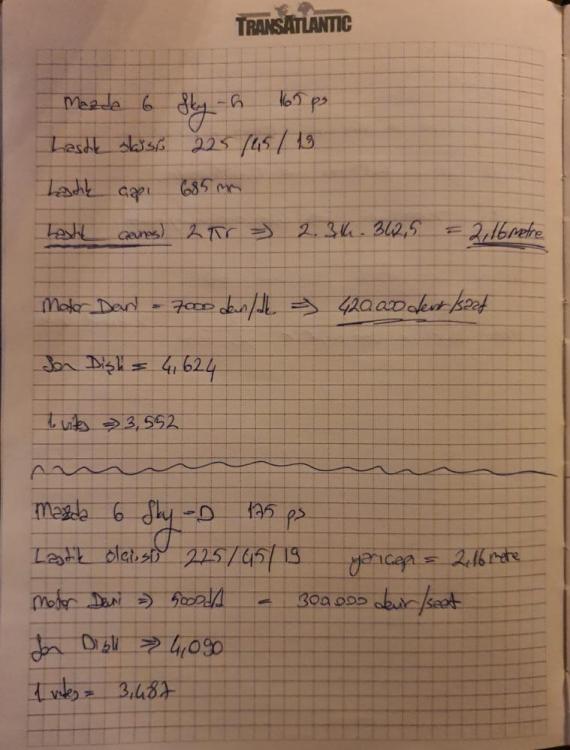 TRANSATLANTIC
Mazda 6 Sky-G 165 ps
Lastik ölçüsü 225/45/19
Lastik çapı 685 mm
Lastik çevresi 2πr ⇒ 2.3,14.342,5 = 2,16 metre
Motor Devri = 7000 devir/dk. ⇒ 420.000 devir/saat
Son Dişli = 4,624
1 vites ⇒ 3,552
Mazda 6 Sky-D 175 ps
Lastik ölçüsü 225/45/19 yarıçapı = 2,16 metre
Motor Devri ⇒ 5000 d/d = 300.000 devir/saat
Son Dişli ⇒ 4,090
1 vites = 3,487